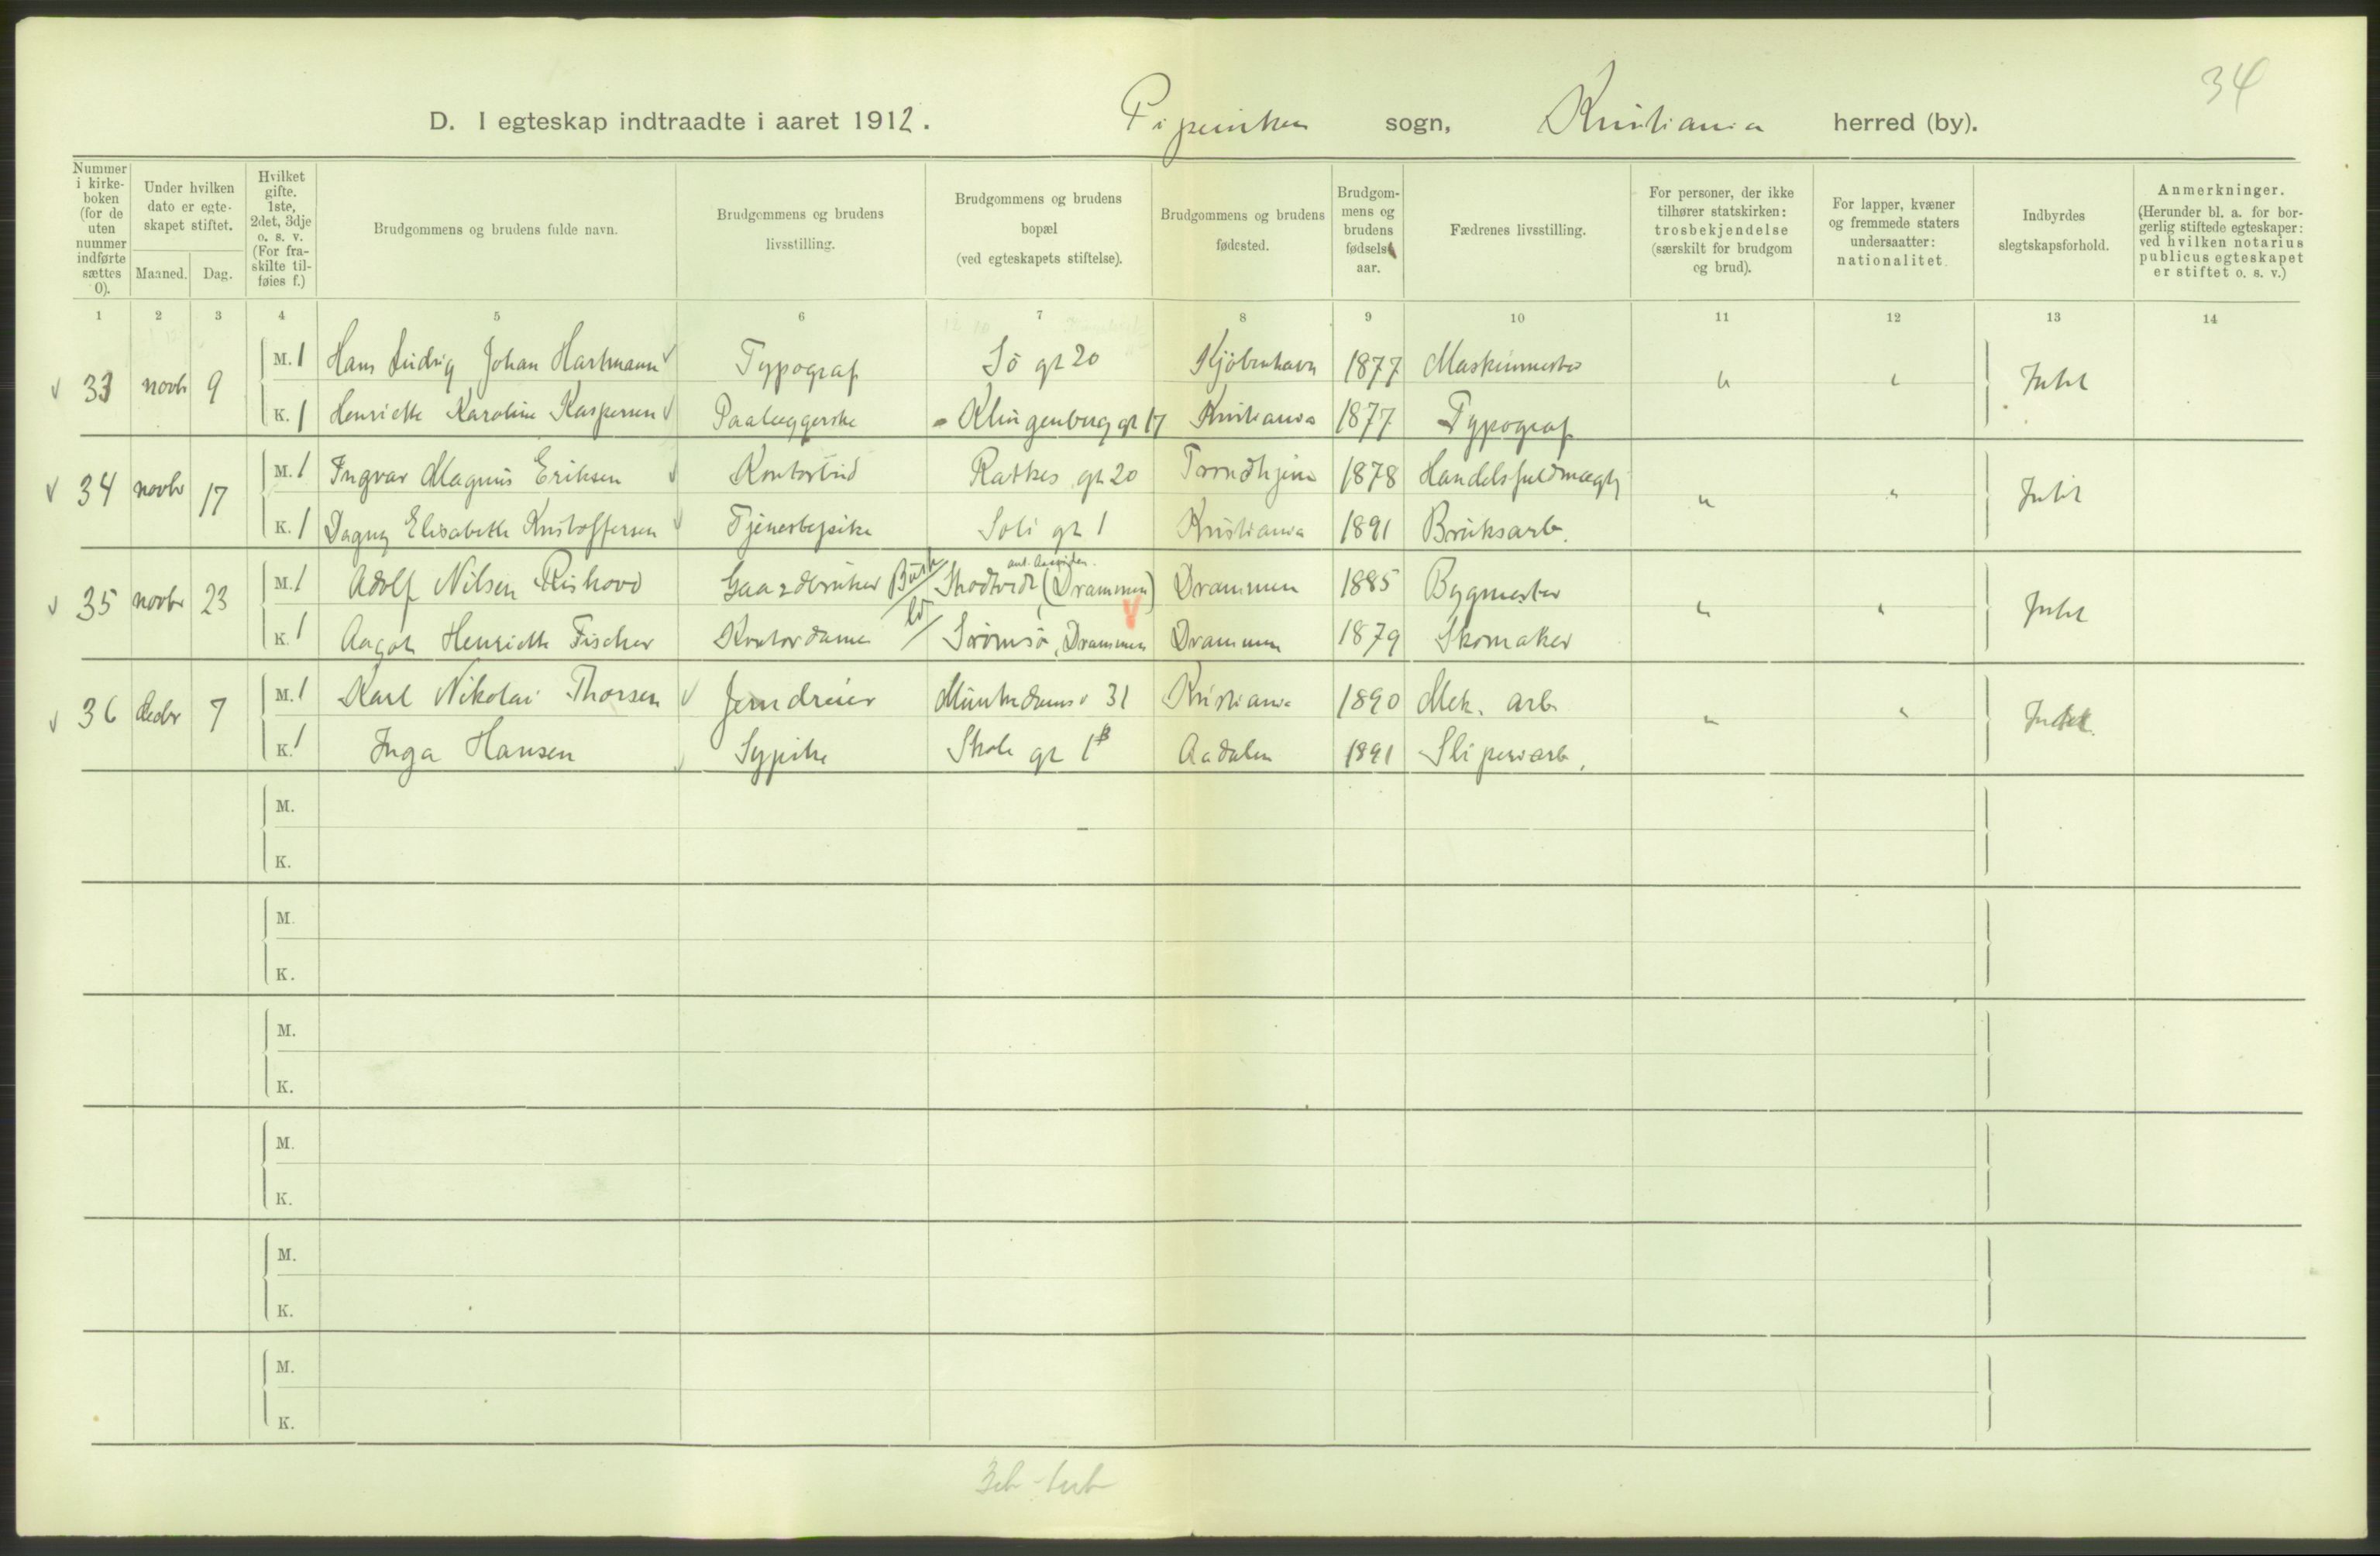 34
D. I egteskap indtraadte i aaret 1912. Piperviken sogn, Kristiania herred (by).
Nummer i kirke-boken (for de uten nummer indførte sættes 0).
Under hvilken dato er egte-skapet stiftet.
Maaned. Dag.
Hvilket gifte. 1ste, 2det, 3dje o. s. v. (For fra-skilte til-føies f.)
Brudgommens og brudens fulde navn.
Brudgommens og brudens livsstilling.
Brudgommens og brudens bopæl (ved egteskapets stiftelse).
Brudgommens og brudens fødested.
Brudgom-mens og brudens fødsels-aar.
Fædrenes livsstilling.
For personer, der ikke tilhører statskirken: trosbekjendelse (særskilt for brudgom og brud).
For lapper, kvæner og fremmede staters undersaatter: nationalitet.
Indbyrdes slegtskapsforhold.
Anmerkninger. (Herunder bl. a. for bor-gerlig stiftede egteskaper: ved hvilken notarius publicus egteskapet er stiftet o. s. v.)
1 2 3 4 5 6 7 8 9 10 11 12 13 14
v 33 novb 9 M. 1 Hans Ludvig Johan Hartmann v Typograf Sö gt 20 Kjöbenhavn 1877 Maskinmester " " Intet
K. 1 Henriette Karoline Kaspersen v Paalæggerske - Klingenberg gt 17 Kristiania 1877 Typograf
v 34 novbr 17 M. 1 Ingvar Magnus Eriksen v Kontorbud Ratkes gt 20 Trondhjem 1878 Handelsfuldmægtg " " Intet
K. 1 Dagny Elisabeth Kristoffersen v Tjenestepike Soli gt 1 Kristiania 1891 Bruksarb.
v 35 novbr 23 M. 1 Adolf Nilsen Rishovd Gaardbruker Busk Skodtvedt (Drammen) Drammen 1885 Bygmester " " Intet
K. 1 Aagot Henriette Fischer Kontordame Strømsø, Drammen Drammen 1879 Skomaker
v 36 decbr 7 M. 1 Karl Nikolai Thorsen v Jerndreier Munkedamsv 31 Kristiania 1890 Mek. arb " " Intet
K. 1 Inga Hansen v Sypike Skole gt 1 B Aadalen 1891 Sliperiarb.
M.
K.
M.
K.
M.
K.
M.
K.
M.
K.
M.
K.